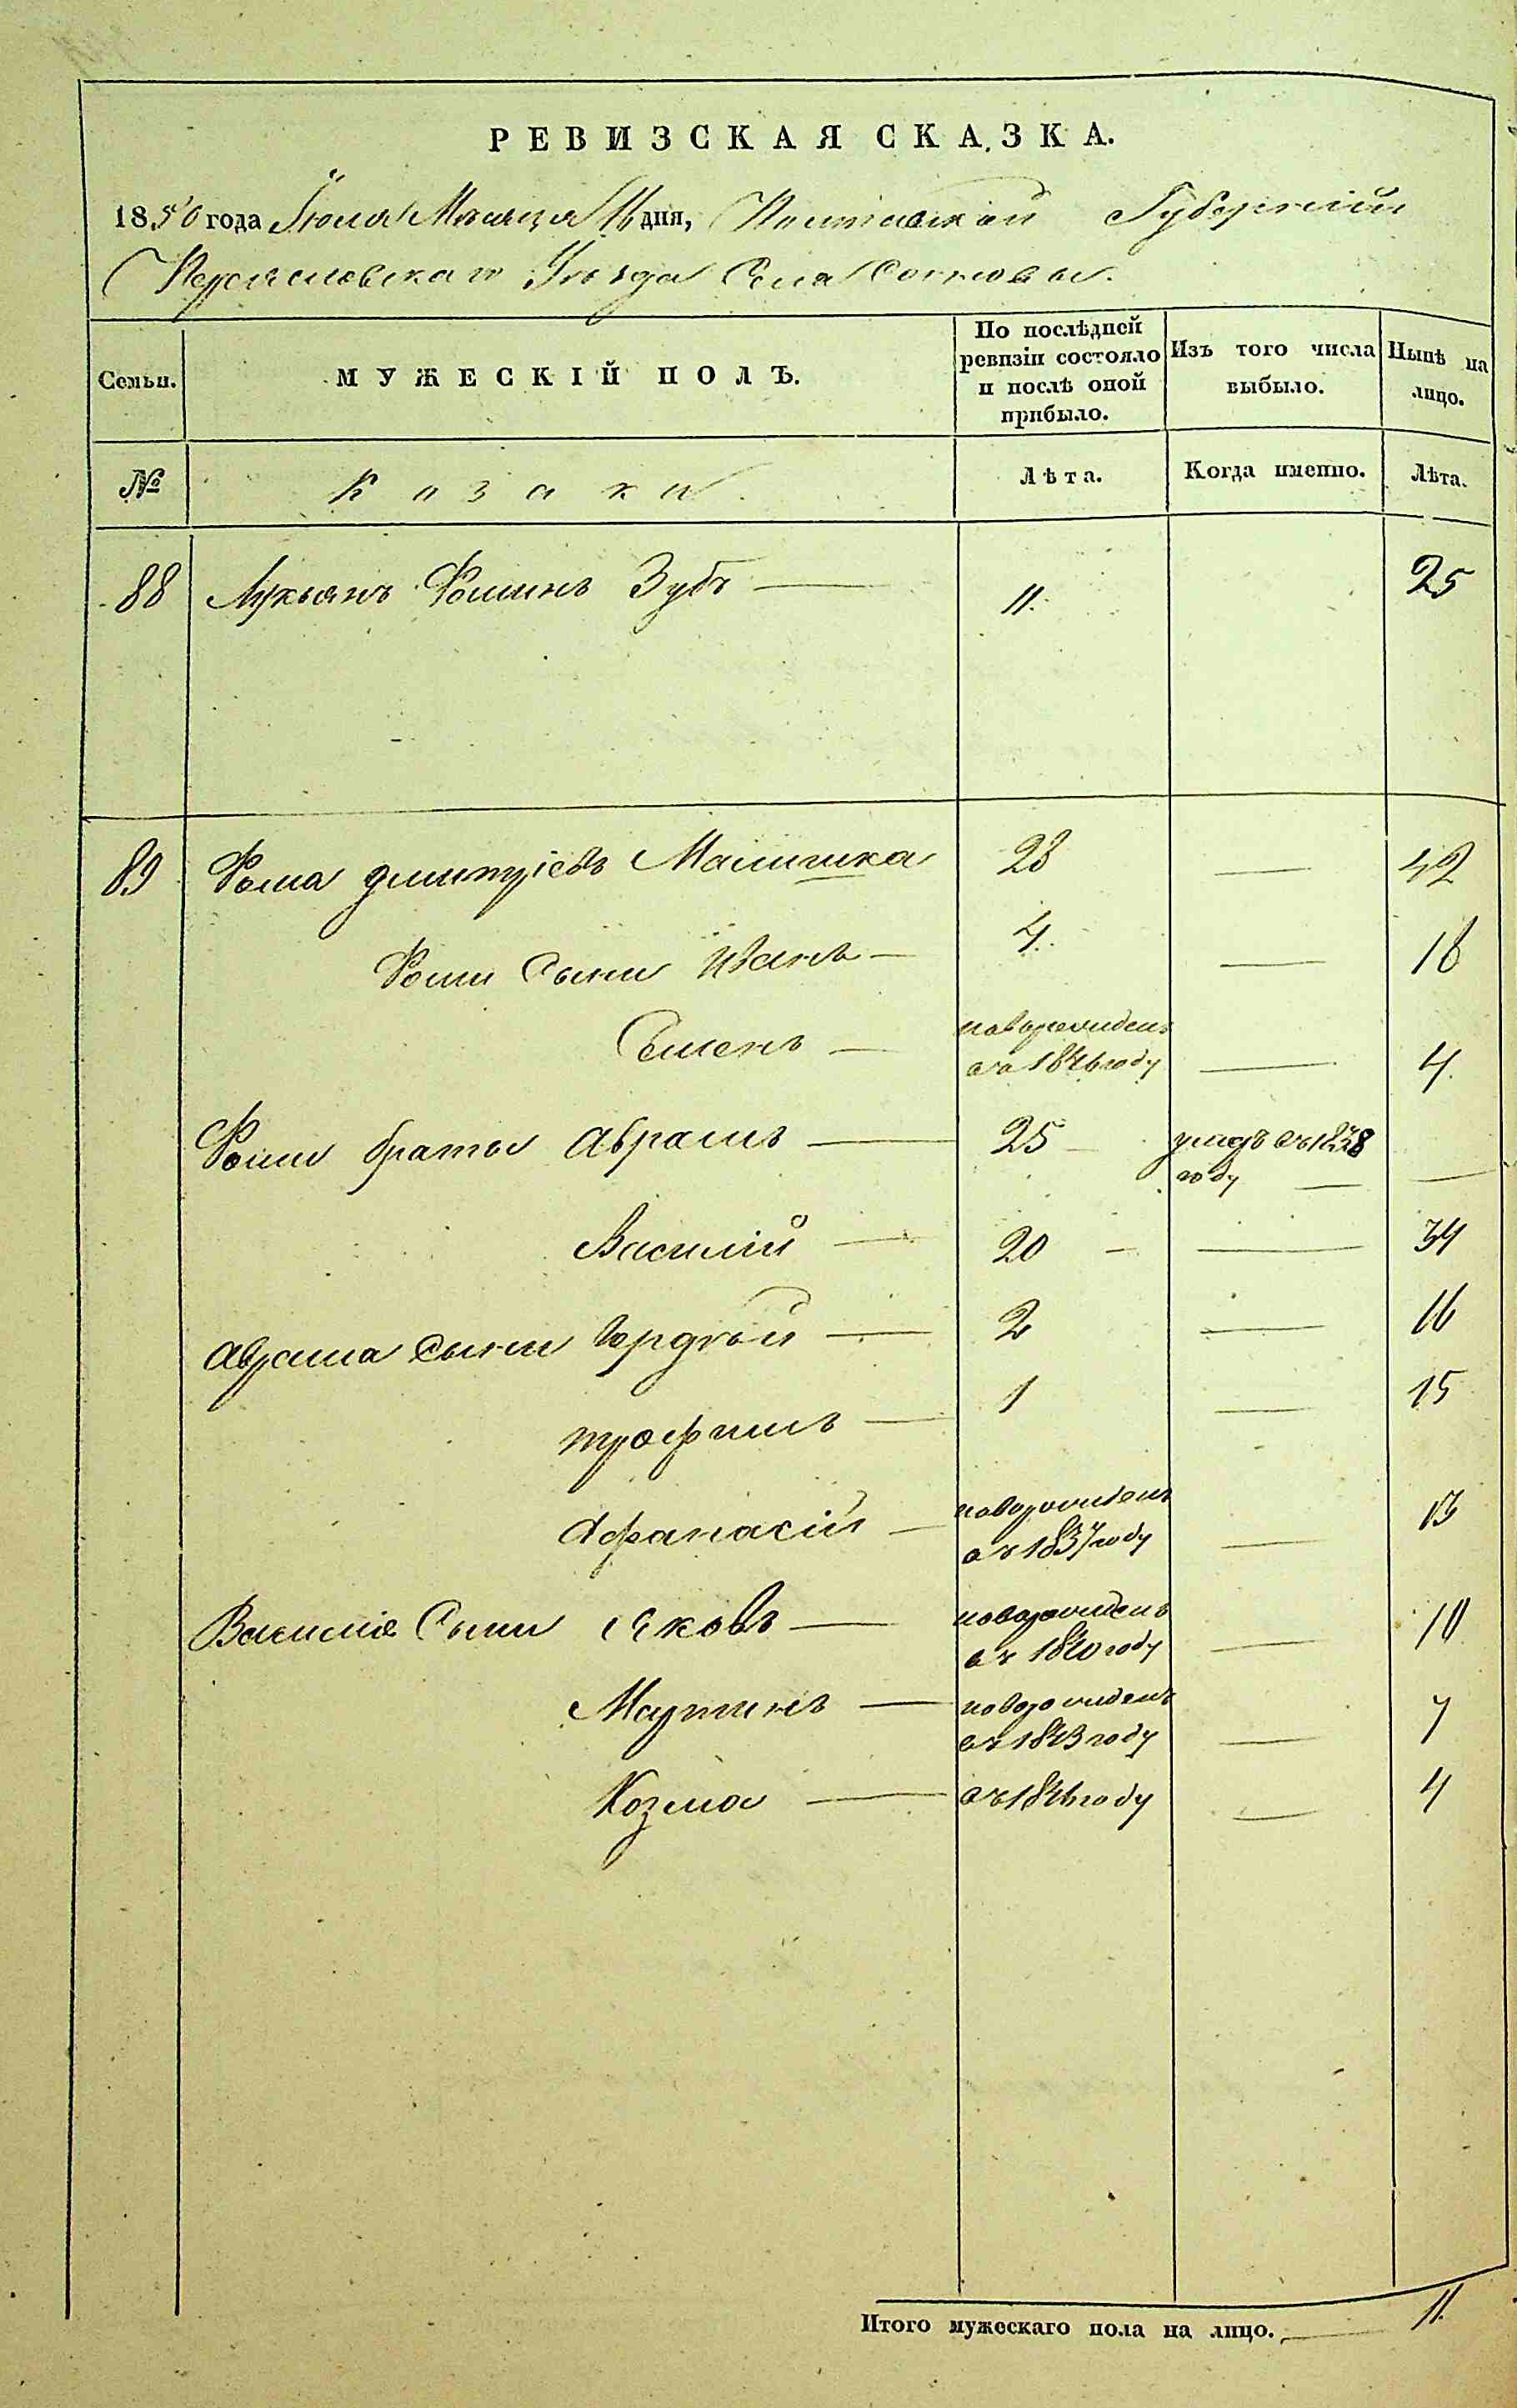 РЕВИЗСКАЯ СКАЗКА.
1850 года Іюля Мѣсяца 16 дня, Полтавской Губерніи
Переяславскаго Уѣзда Села Сосновы.
Семьи. МУЖЕСКІЙ ПОЛЪ. По послѣдней ревизіи состояло и послѣ оной прибыло. Изъ того числа выбыло. Нынѣ на лицо.
№ Козаки. Лѣта. Когда именно. Лѣта.
88 Лукьянъ Фоминъ Зубъ — 11. 25
89 Фома Дмитріевъ Малишка 28 — 42
Фомы Сыны Иванъ — 4. — 18
Семенъ — новорожденъ — 4.
въ 1846 году
Фомы братья Аврамъ — 25 — умеръ въ 1838
году — —
Василій — 20 — — 34
Аврама Сыны Гордѣй — 2 — 16
Трофимъ — 1 — 15
Афанасій — новорожденъ — 13
въ 1837 году
Василія Сыны Яковъ — новорожденъ — 10
въ 1840 году
Мартинъ — новорожденъ — 7
въ 1843 году
Козма — въ 1846 году — 4
Итого мужескаго пола на лицо. — 11.